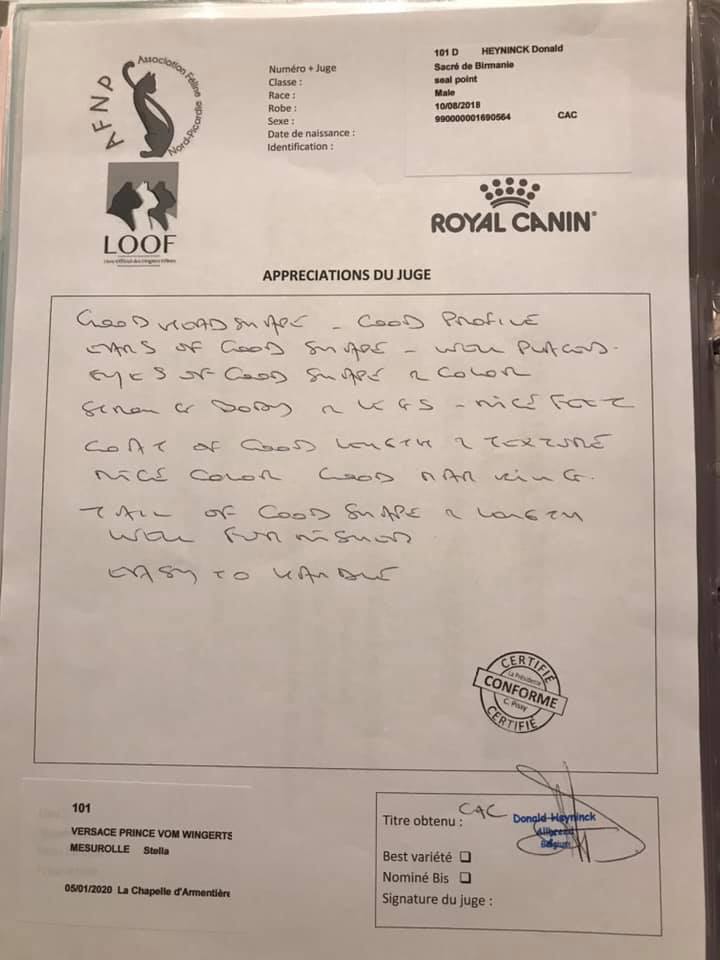 AFNP
Association Féline
Nord-Picardie
LOOF
Livre Officiel des Origines Félines
Numéro + Juge
Classe :
Race :
Robe :
Sexe :
Date de naissance :
Identification :
101 D HEYNINCK Donald
Sacré de Birmanie
seal point
Male
10/08/2018
990000001690564 CAC
ROYAL CANIN®
APPRECIATIONS DU JUGE
GOOD HEADSHAPE - GOOD PROFILE
EARS OF GOOD SHAPE - WELL PLACED.
EYES OF GOOD SHAPE & COLOR
STRONG BODY & LEGS - NICE FEET
COAT OF GOOD LENGTH & TEXTURE
NICE COLOR GOOD MARKING.
TAIL OF GOOD SHAPE & LENGTH
WELL FURNISHED
EASY TO HANDLE
CERTIFIÉ
La Présidente
CONFORME
C. Pisay
CERTIFIÉ
101
VERSACE PRINCE VOM WINGERTS
MESUROLLE Stella
05/01/2020 La Chapelle d'Armentière
Titre obtenu : CAC
Donald Heyninck
Allbreed
Belgium
Best variété ❑
Nominé Bis ❑
Signature du juge :